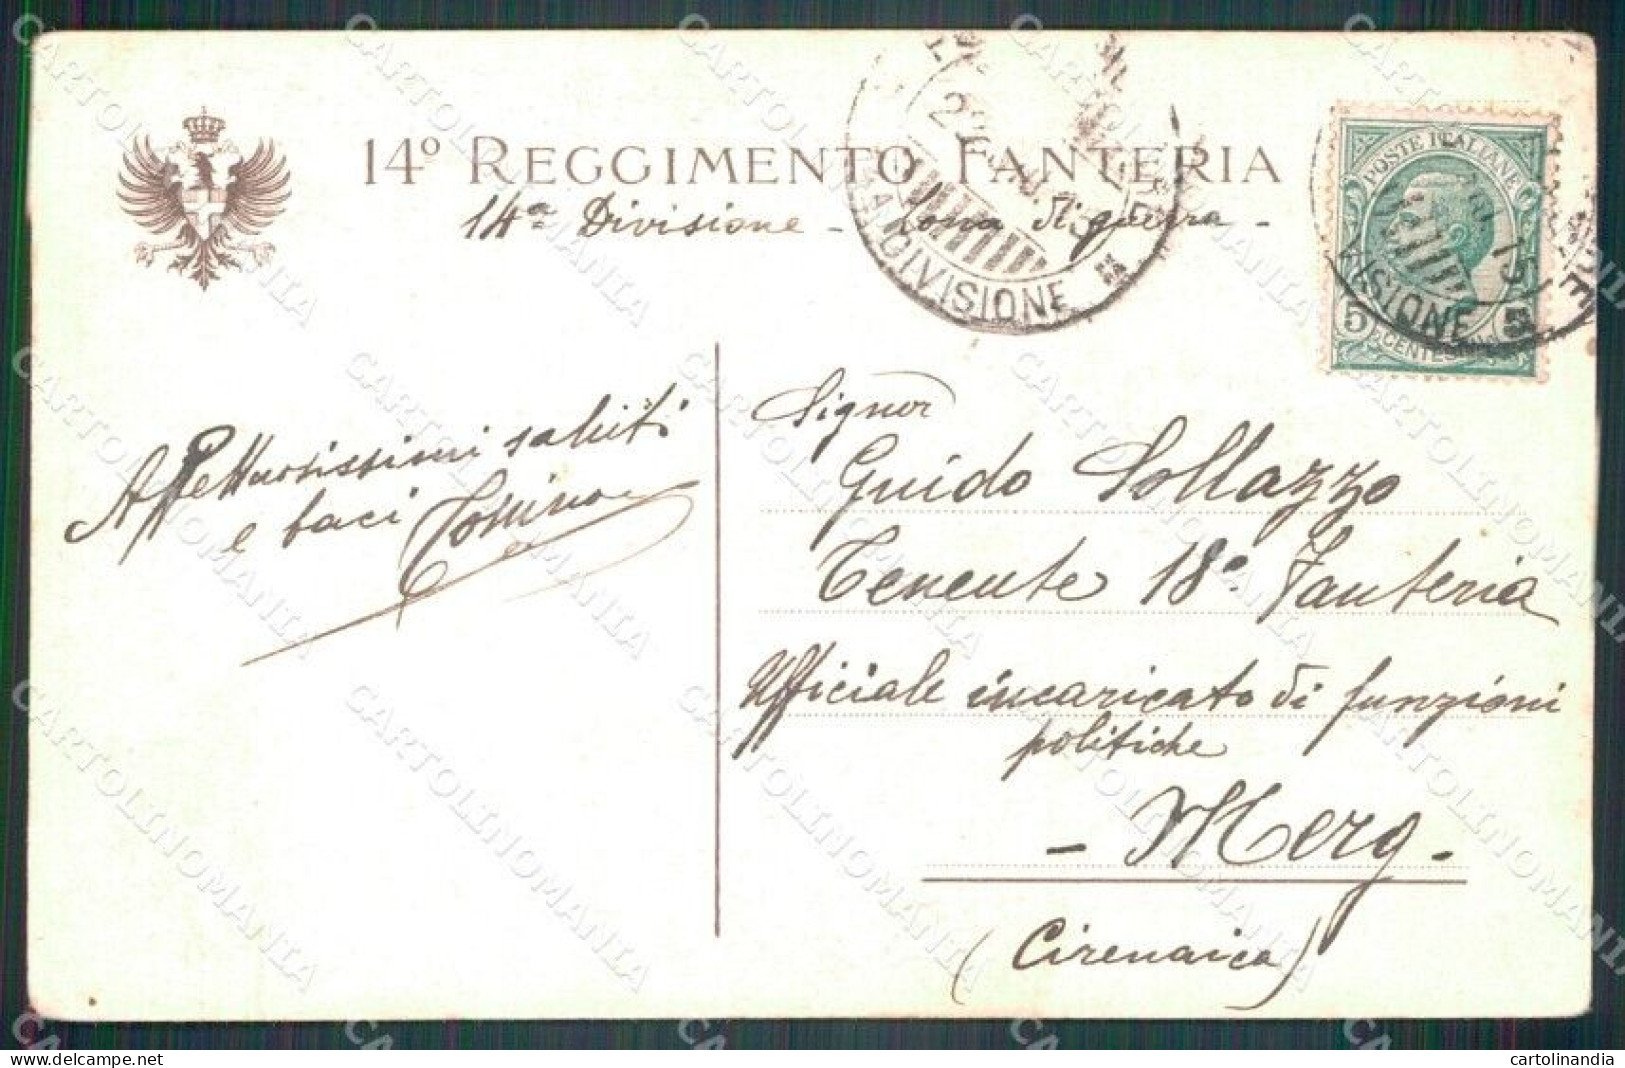 14º REGGIMENTO FANTERIA
14ª Divisione - Zona di guerra -
DIVISIONE
POSTE ITALIANE
15
VISIONE
5 CENTESIMI 5
Affettuosissimi saluti
e baci Tonino
Signor
Guido Sollazzo
Tenente 18º Fanteria
Ufficiale incaricato di funzioni
politiche
- Merg -
(Cirenaica)
CARTOLINOMANIA
cartolinandia